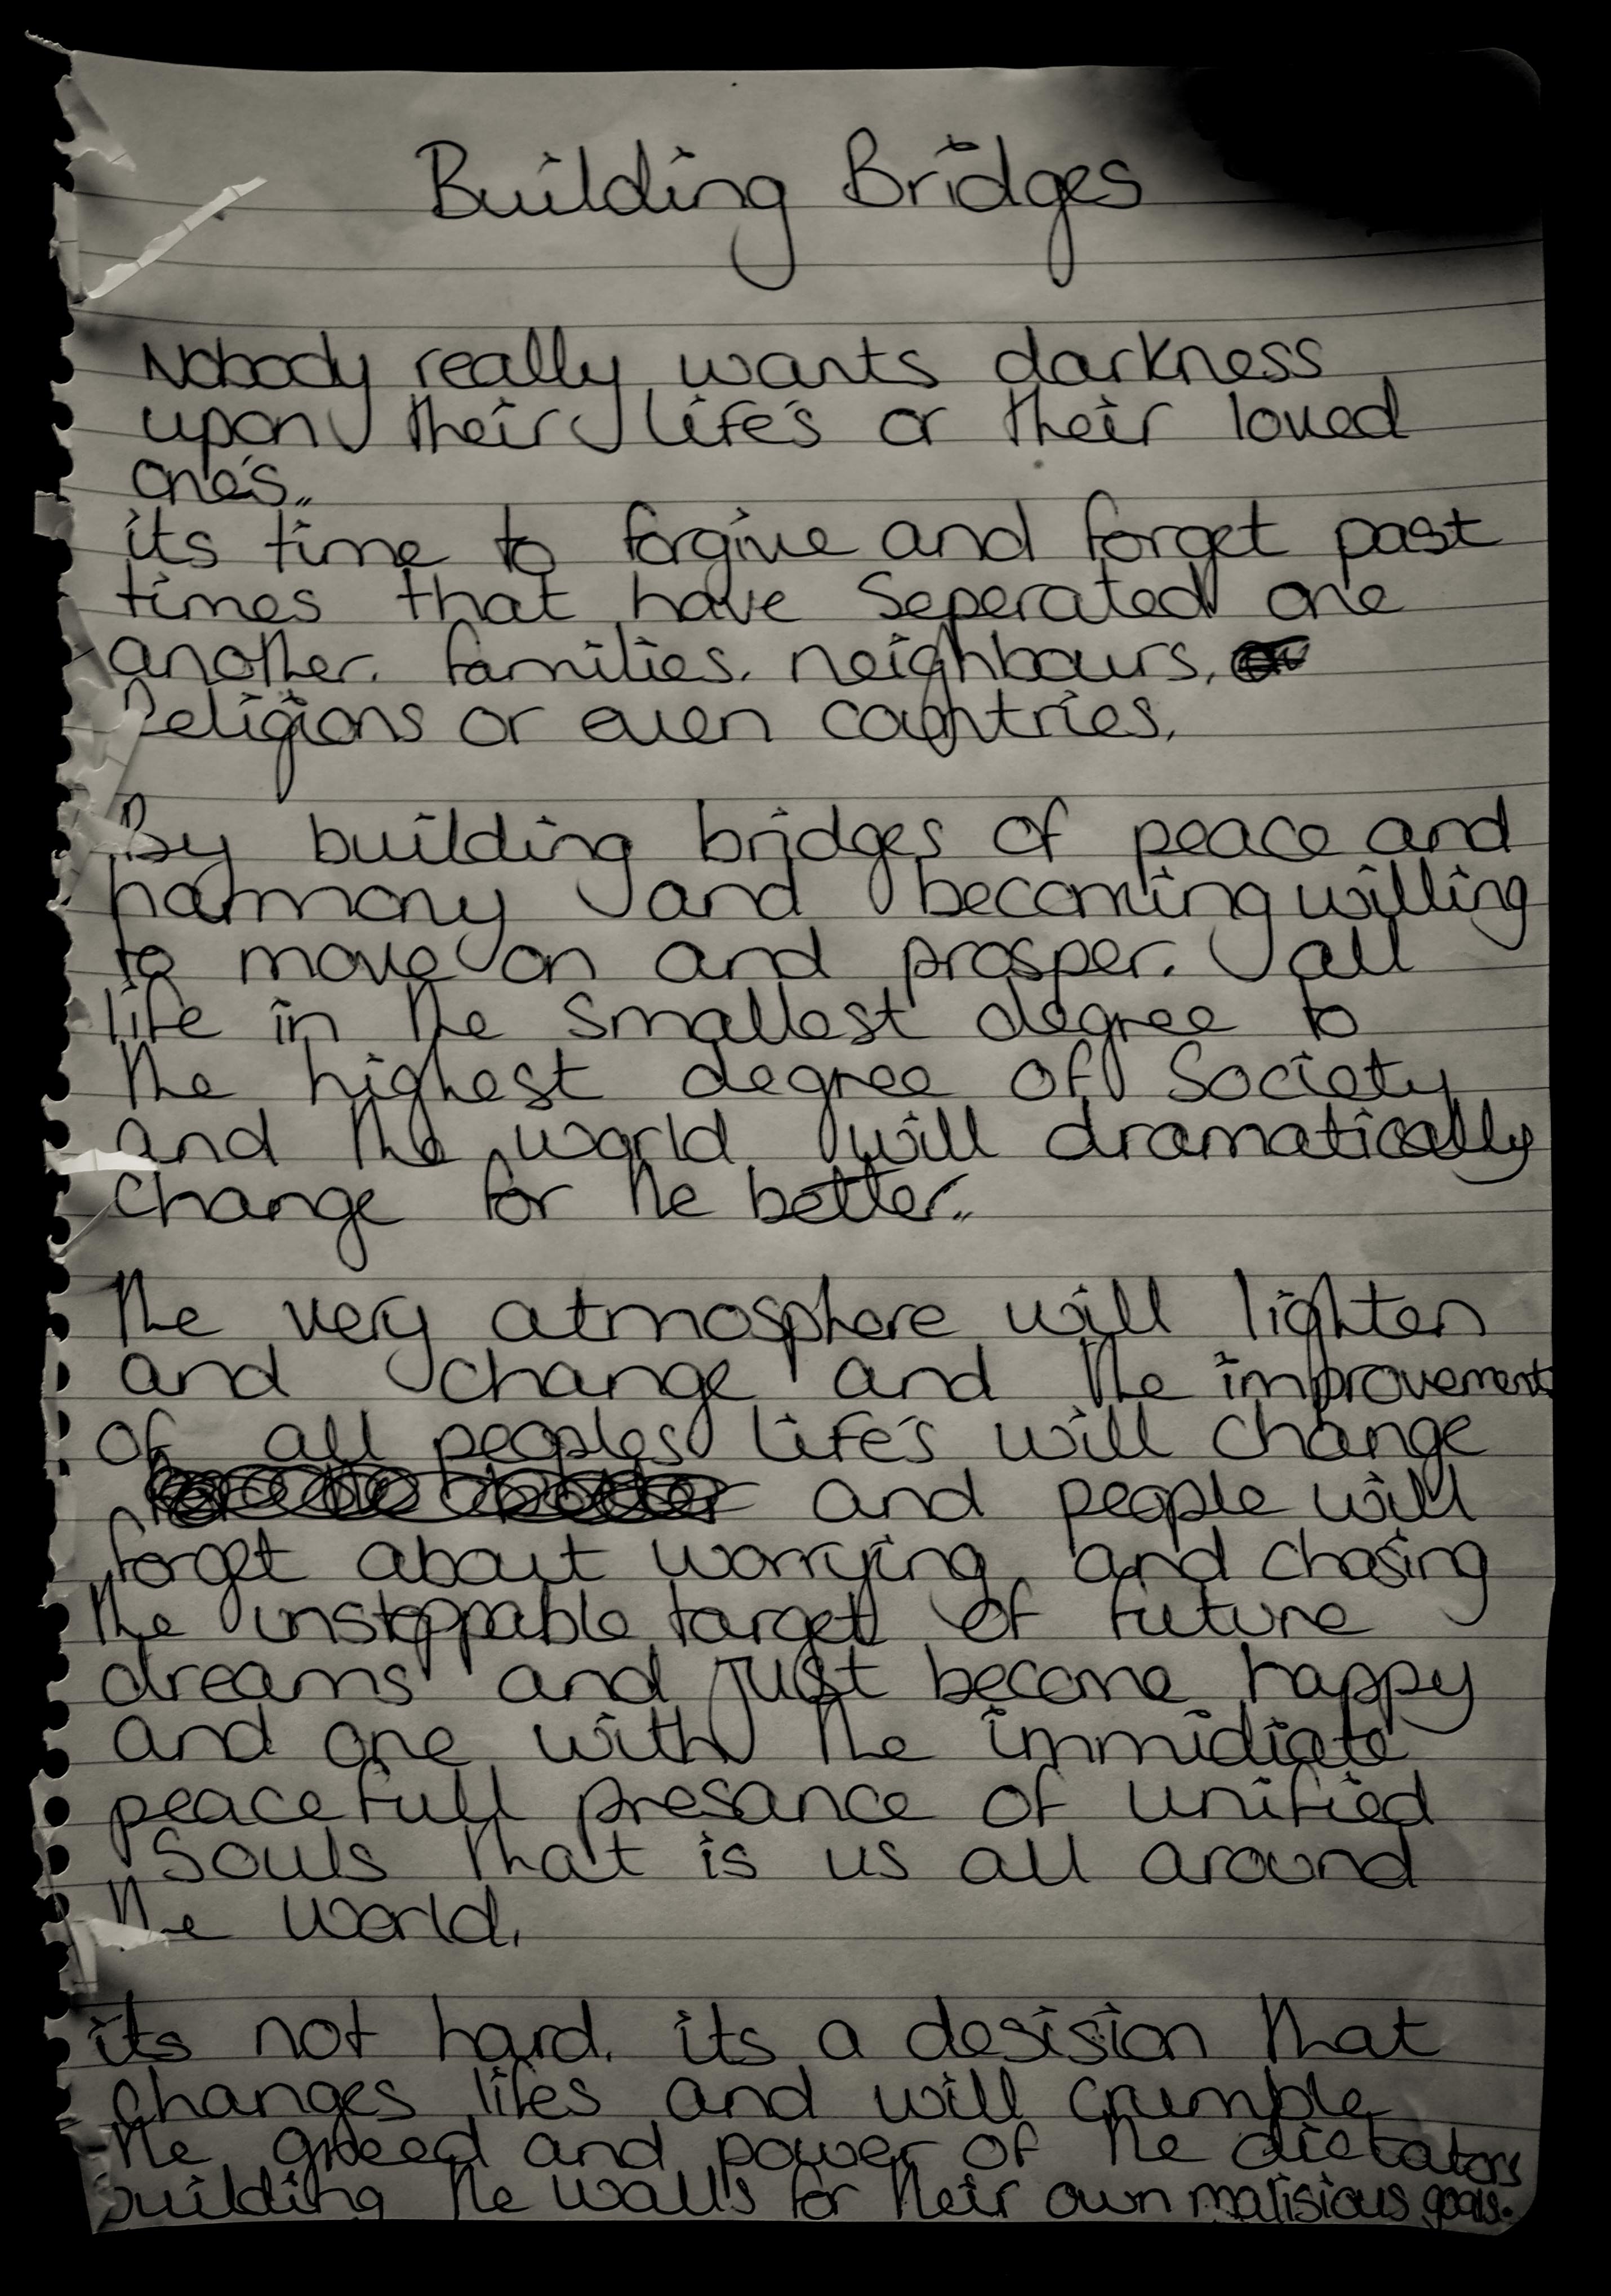 Building Bridges
Nobody really wants darkness
upon their life's or their loved
one's..
its time to forgive and forget past
times that have Seperated one
another. families. neighbours.
Religions or even countries.
By building bridges of peace and
harmony and becoming willing
to move on and prosper. all
life in the smallest degree to
the highest degree of Society
and the world will dramatically
change for the better..
The very atmosphere will lighten
and change and the improvement
of all peoples life's will change
and people will
forget about worrying and chasing
the unstoppable target of future
dreams and just become happy
and one with the immidiate
peacefull presance of unified
Souls that is us all around
the world.
its not hard. its a desision that
changes lifes and will crumble
the greed and power of the dictators
building the walls for their own malisious goals.